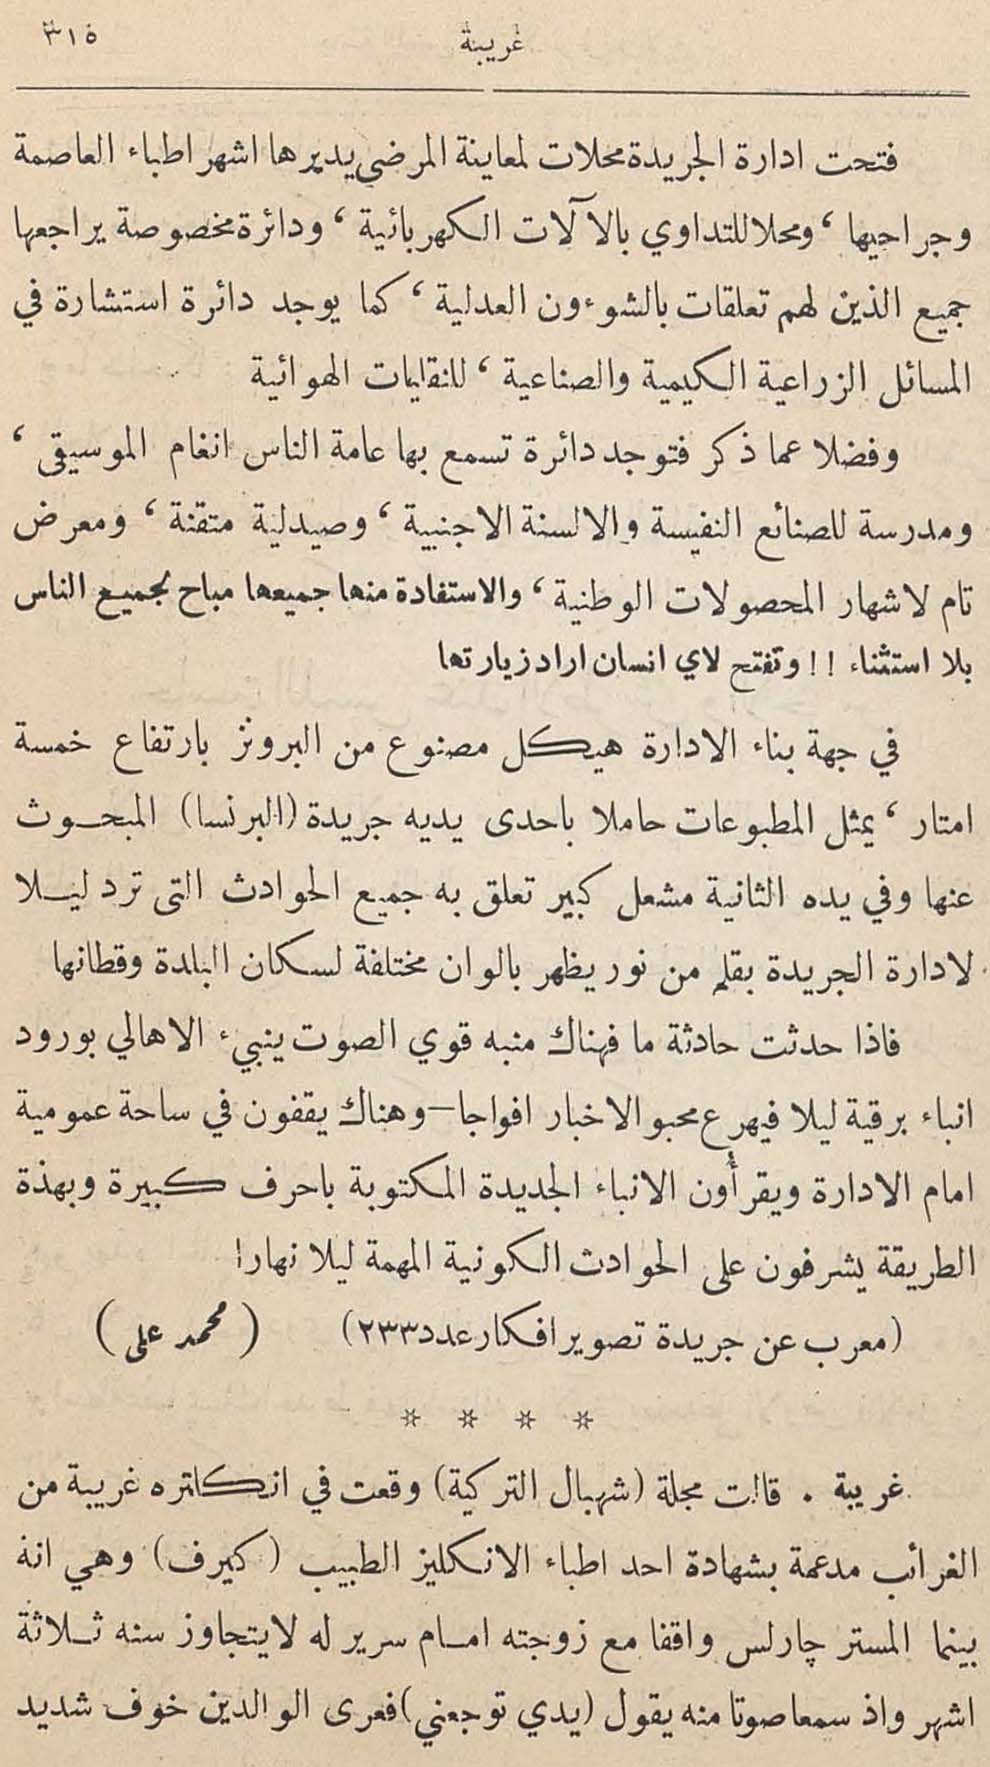 غريبة
٣١٥
فتحت ادارة الجريدة محلات لمعاينة المرضى يديرها اشهر اطباء العاصمة
وجراحيها ، ومحلا للتداوي بالآلات الكهربائية ، ودائرة مخصوصة يراجعها
جميع الذين لهم تعلقات بالشوءون العدلية ، كما يوجد دائرة استشارة في
المسائل الزراعية الكيمية والصناعية ، للنقليات الهوائية
وفضلا عما ذكر فتوجد دائرة تسمع بها عامة الناس انغام الموسيقى ،
ومدرسة للصنائع النفيسة والالسنة الاجنبية ، وصيدلية متقنة ، ومعرض
تام لاشهار المحصولات الوطنية ، والاستفادة منها جميعها مباح لجميع الناس
بلا استثناء !! وتفتح لاي انسان اراد زيارتها
في جهة بناء الادارة هيكل مصنوع من البرونز بارتفاع خمسة
امتار ، يمثل المطبوعات حاملا باحدى يديه جريدة (البرنسا) المبحوث
عنها وفي يده الثانية مشعل كبير تعلق به جميع الحوادث التى ترد ليلا
لادارة الجريدة بقلم من نور يظهر بالوان مختلفة لسكان البلدة وقطانها
فاذا حدثت حادثة ما فهناك منبه قوي الصوت ينبيء الاهالي بورود
انباء برقية ليلا فيهرع محبو الاخبار افواجا – وهناك يقفون في ساحة عمومية
امام الادارة ويقرأون الانباء الجديدة المكتوبة باحرف كبيرة وبهذة
الطريقة يشرفون على الحوادث الكونية المهمة ليلا نهارا
(معرب عن جريدة تصوير افكار عدد ٢٣٣) (محمد على)
* * * *
غريبة . قالت مجلة (شهبال التركية) وقعت في انكلتره غريبة من
الغرائب مدعمة بشهادة احد اطباء الانكليز الطبيب (كيرف) وهي انه
بينما المستر چارلس واقفا مع زوجته امام سرير له لا يتجاوز سنه ثلاثة
اشهر واذ سمعا صوتا منه يقول (يدي توجعني) فعرى الوالدين خوف شديد